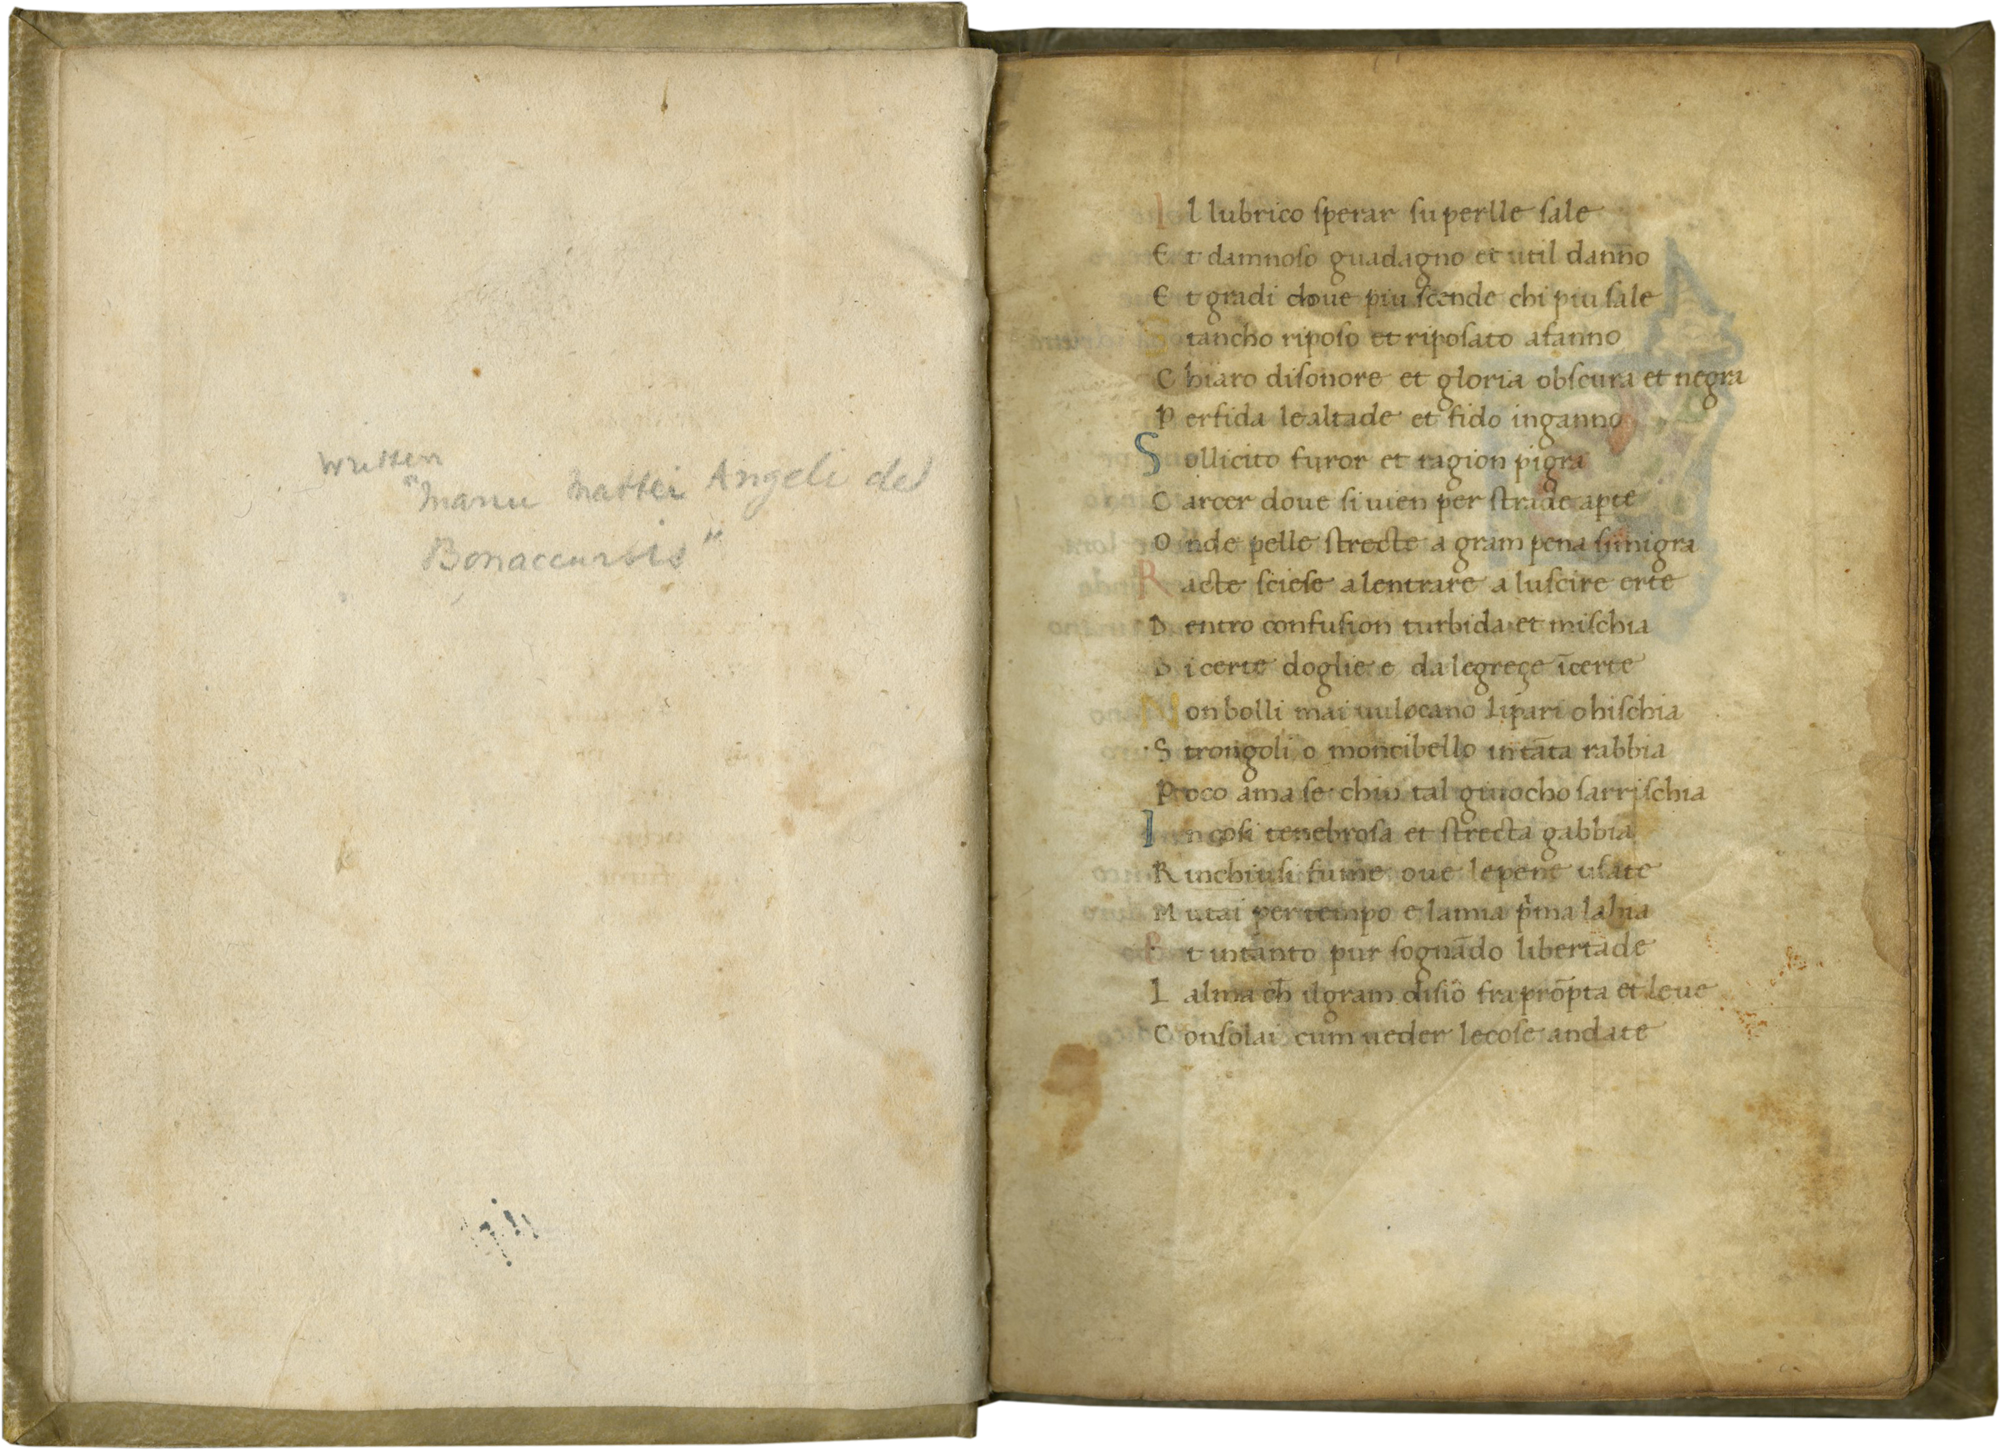 written
"manu mattei Angeli del
Bonaccursis"
Il lubrico sperar su perlle sale
Et damnoso guadagno et util danno
Et gradi doue piu scende chi piu sale
Stancho riposo et riposato afanno
Chiaro disonore et gloria obscura et negra
Perfida lealtade et fido inganno
Sollicito furor et ragion pigra
Carcer doue si uien per strade apte
Onde pelle strecte a gram pena si migra
Racte sciese alentrare a luscire erte
Dentro confusion turbida et mischia
Di certe doglie e dalegreçe īcerte
Non bolli mai uulocano lipari o hischia
Strongoli o moncibello in tāta rabbia
Poco ama se chi in tal giuocho sarrischia
In cosi tenebrosa et strecta gabbia
Rinchiusi fumē oue le pene usate
Mutai per tempo e la mia pma labia
Et intanto pur sognādo libertade
Lalma ch il gram disio fra prōpta et leue
Consolai cum ueder le cose andate